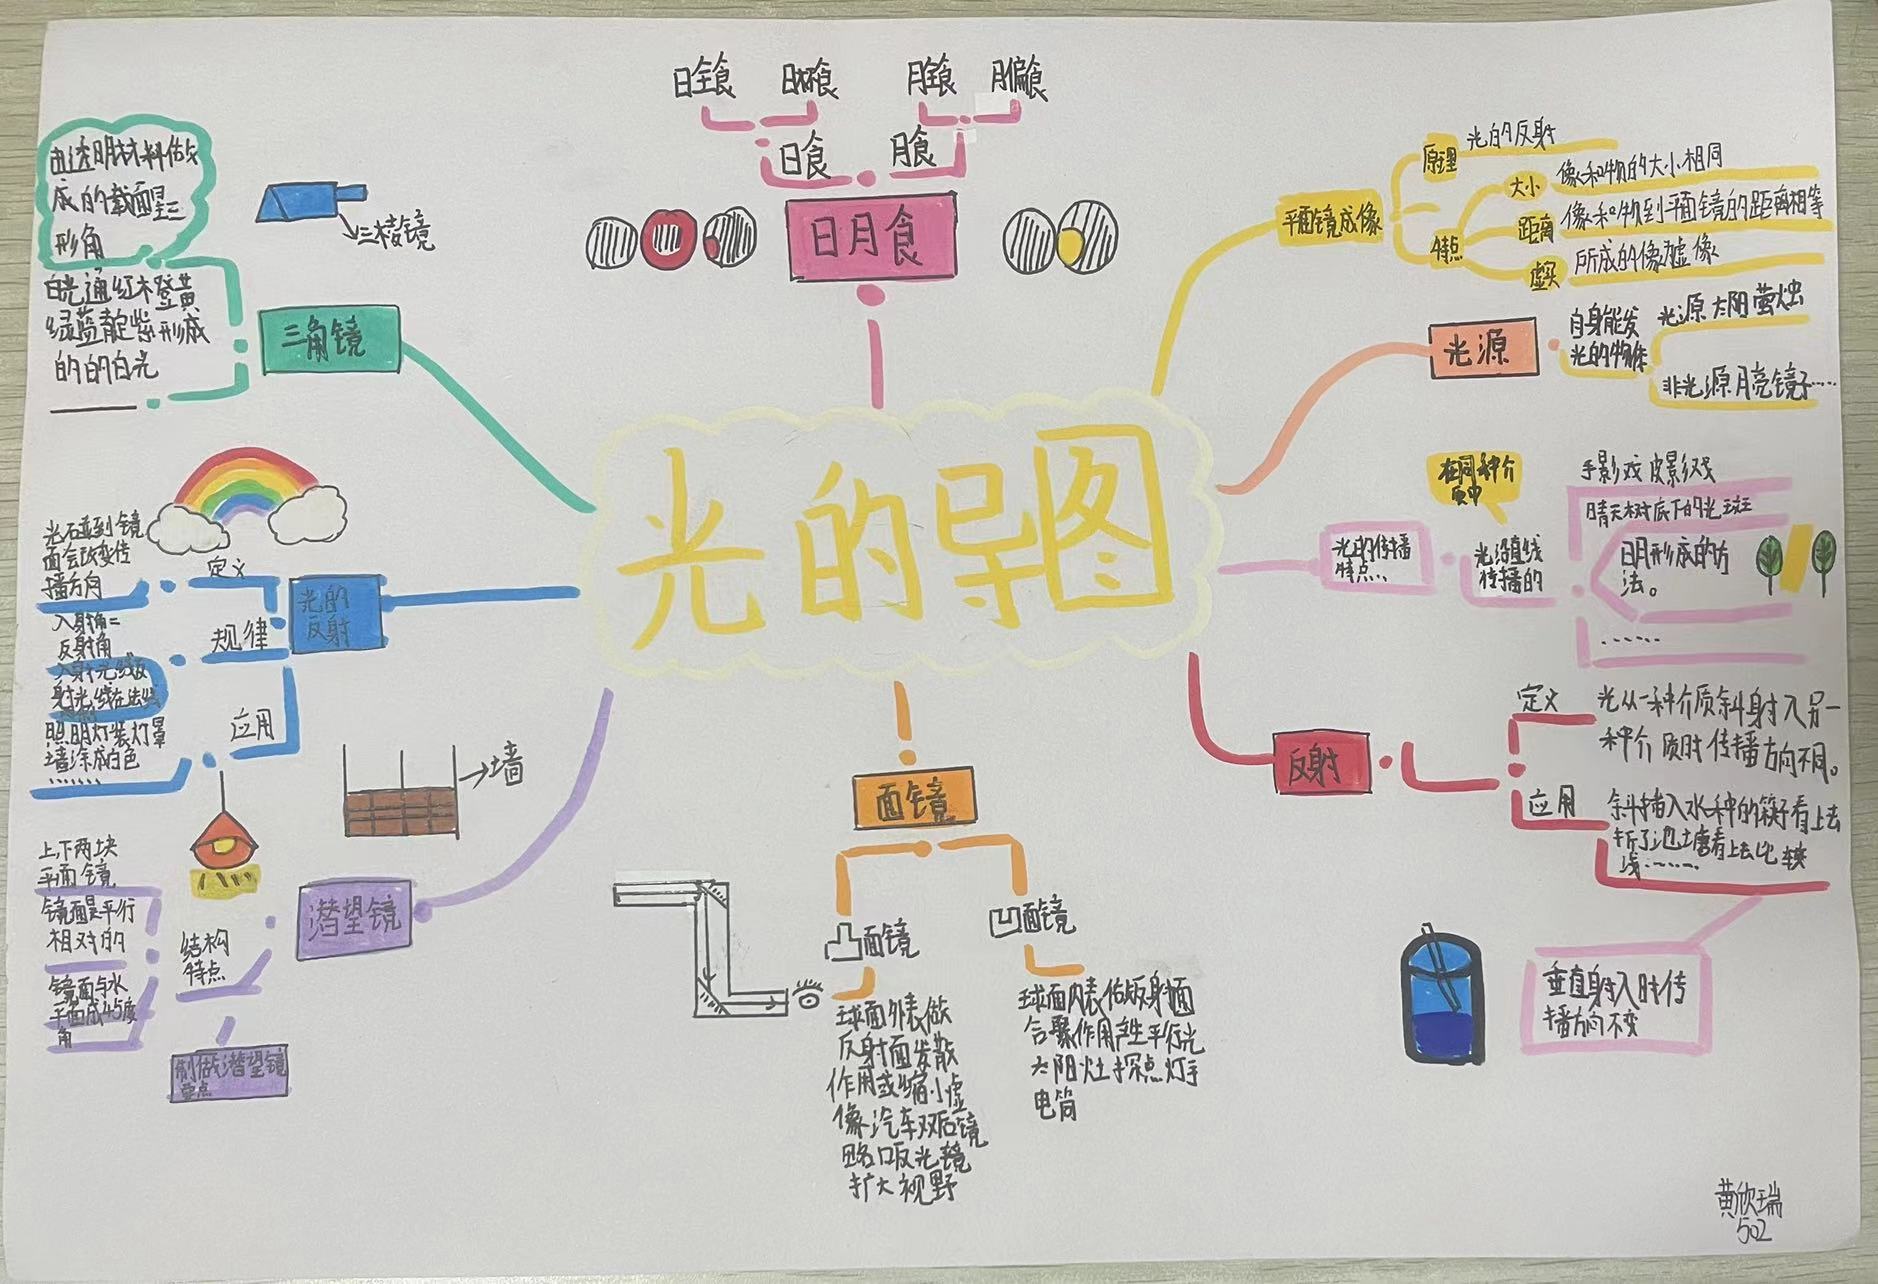 光的导图
日全食
日环食
月全食
月偏食
日食
月食
日月食
平面镜成像
原理
光的反射
特点
大小
像和物的大小相同
距离
像和物到平面镜的距离相等
虚实
所成的像虚像
光源
自身能发
光的物体
光源太阳萤烛
非光源月亮镜子……
光的传播
特点…
在同种介
质中
光沿直线
传播的
手影戏皮影戏
晴天树底下的光斑
日月形成的方
法。
……
反射
定义
光从一种介质斜射入另一
种介质时传播方向不同。
应用
斜插入水种的筷子看上去
折了池塘看上去比较
浅……
垂直射入时传
播方向不变
面镜
凸面镜
球面外表做
反射面发散
作用或缩小虚
像汽车双后镜
路口反光镜
扩大视野
凹面镜
球面内表做反射面
合聚作用产生平行光
太阳灶探点灯手
电筒
潜望镜
结构
特点
上下两块
平面镜
镜面是平行
相对的
镜面与水
平面成45度
角
制做潜望镜
要点
光的
反射
定义
光石碰到镜
面会改变传
播方向
规律
入射角=
反射角
入射光线反
射光线在法线
应用
照明灯装灯罩
墙涂成白色
……
→墙
三角镜
由透明材料做
成的截面呈三
形角
白光通红橙黄
绿蓝靛紫形成
的的白光
三棱镜
黄欣瑞
502